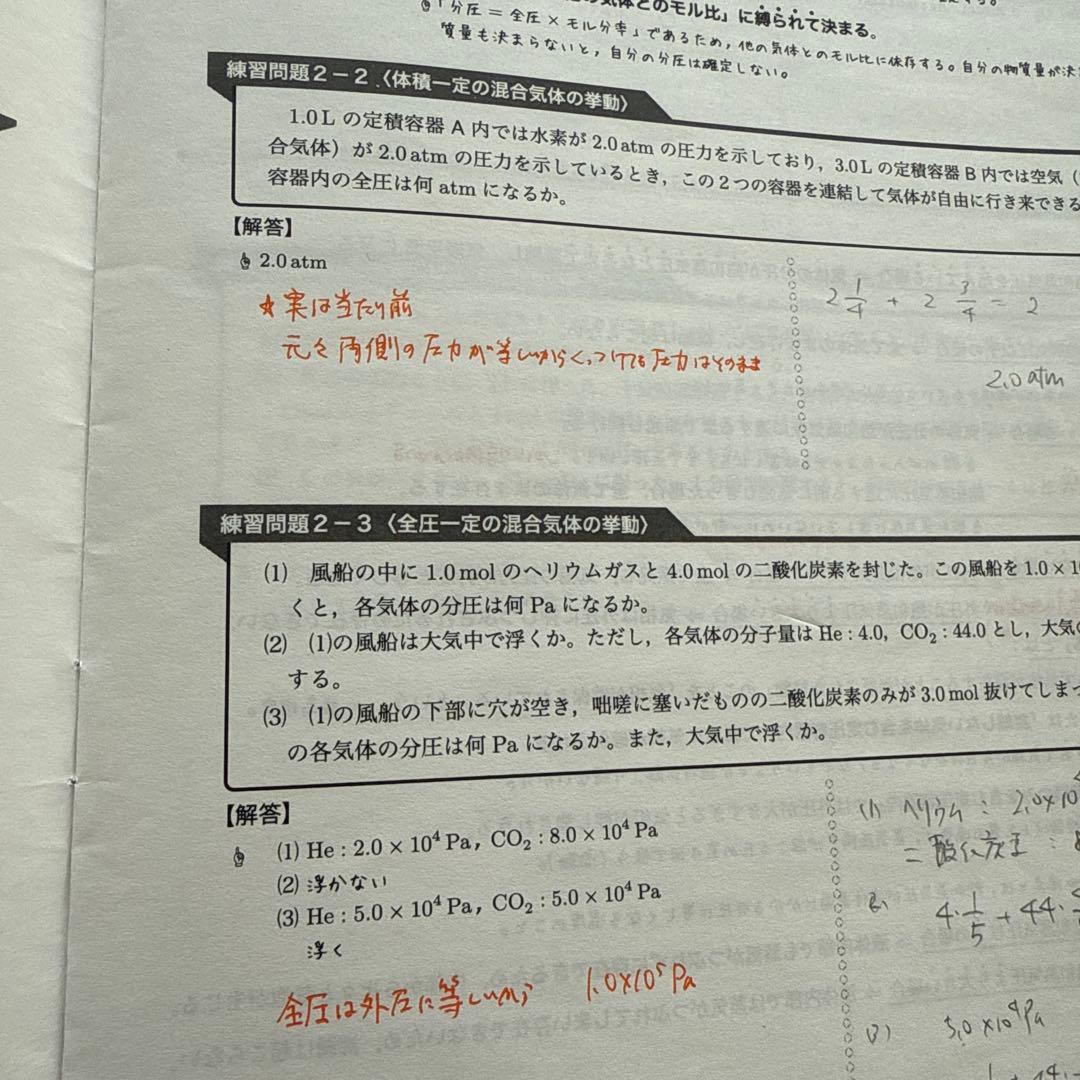 気体とのモル比」に縛られて決まる。
「分圧＝全圧×モル分率」であるため，他の気体とのモル比に依存する。自分の物質量が決
質量も決まらないと，自分の分圧は確定しない。
練習問題２－２〈体積一定の混合気体の挙動〉
1.0 L の定積容器 A 内では水素が 2.0 atm の圧力を示しており，3.0 L の定積容器 B 内では空気（
合気体）が 2.0 atm の圧力を示しているとき，この２つの容器を連結して気体が自由に行き来できる
容器内の全圧は何 atm になるか。
【解答】
2.0 atm
★実は当たり前
元々両側の圧力が等しいからくっつけても圧力はそのまま
2 1/4 + 2 3/4 = 2
2.0 atm
練習問題２－３〈全圧一定の混合気体の挙動〉
(1) 風船の中に 1.0 mol のヘリウムガスと 4.0 mol の二酸化炭素を封じた。この風船を 1.0 × 10
くと，各気体の分圧は何 Pa になるか。
(2) (1)の風船は大気中で浮くか。ただし，各気体の分子量は He : 4.0，CO₂ : 44.0 とし，大気の
する。
(3) (1)の風船の下部に穴が空き，咄嗟に塞いだものの二酸化炭素のみが 3.0 mol 抜けてしまっ
の各気体の分圧は何 Pa になるか。また，大気中で浮くか。
【解答】
(1) He : 2.0 × 10⁴ Pa，CO₂ : 8.0 × 10⁴ Pa
(2) 浮かない
(3) He : 5.0 × 10⁴ Pa，CO₂ : 5.0 × 10⁴ Pa
浮く
全圧は外圧に等しいから 1.0×10⁵ Pa
(1) ヘリウム : 2.0×10
二酸化炭素 :
4・1/5 + 44・
(3) 5.0×10⁴Pa